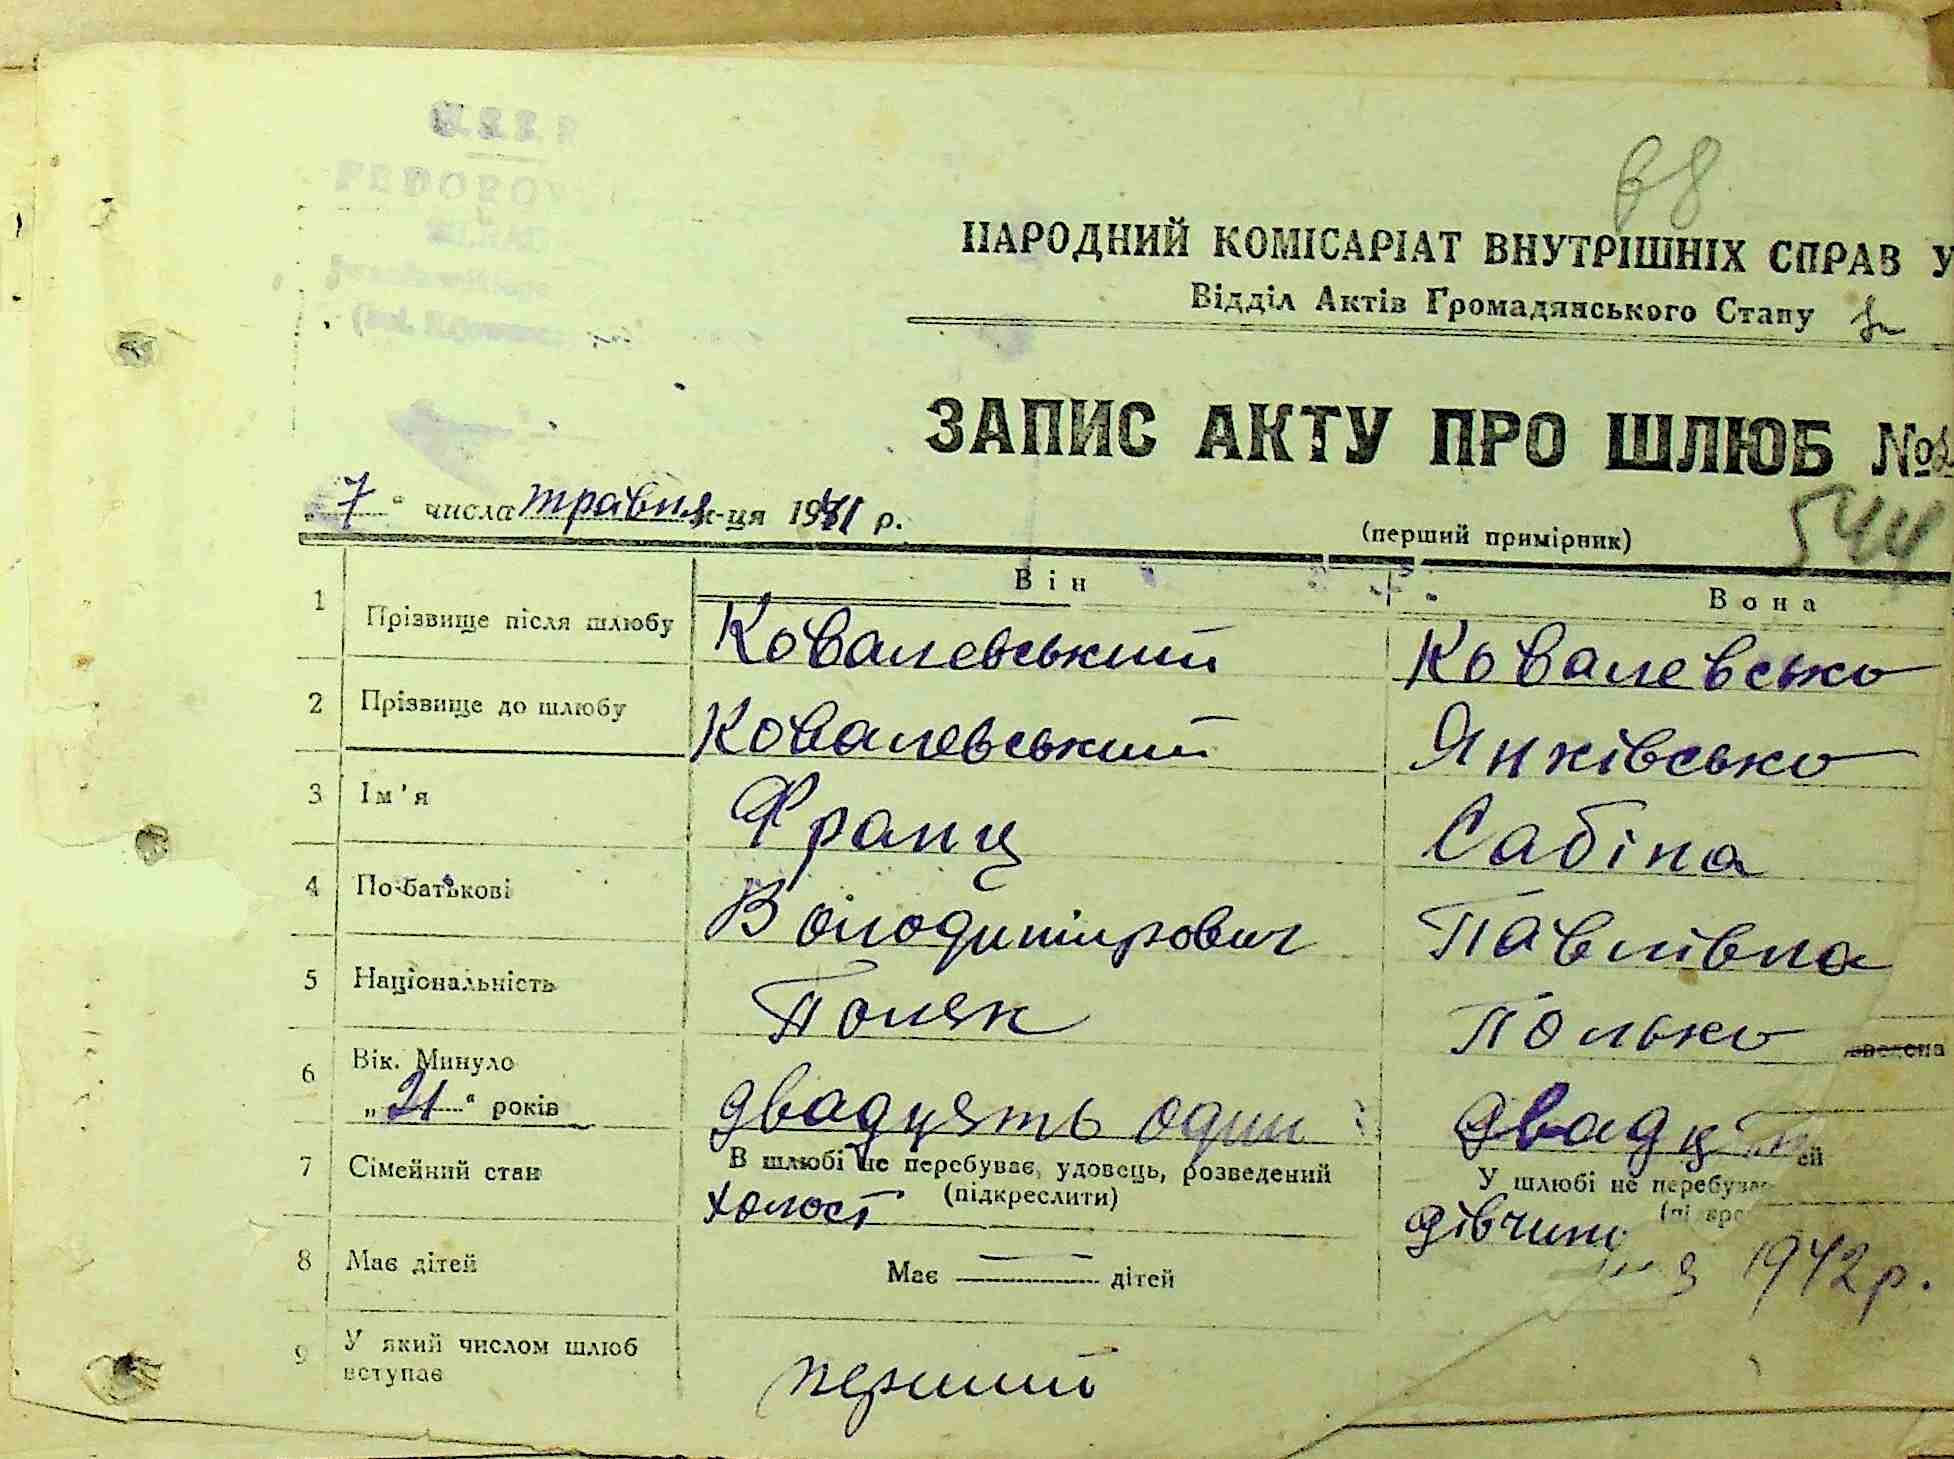 68
НАРОДНИЙ КОМІСАРІАТ ВНУТРІШНІХ СПРАВ У
Відділ Актів Громадянського Стану
ЗАПИС АКТУ ПРО ШЛЮБ №
„7“ числа травня м-ця 1941 р.
(перший примірник) 544
Він Вона
1 Прізвище після шлюбу Ковалевський Ковалевська
2 Прізвище до шлюбу Ковалевський Янківська
3 Ім'я Франц Сабіна
4 По-батькові Володимирович Павлівна
5 Національність Поляк Полька
6 Вік. Минуло двадцять один двадц
„21“ років
7 Сімейний стан В шлюбі не перебуває, удовець, розведений У шлюбі не перебуває
(підкреслити)
холост дівчина
8 Має дітей Має — дітей 1942 р.
9 У який числом шлюб вступає перший